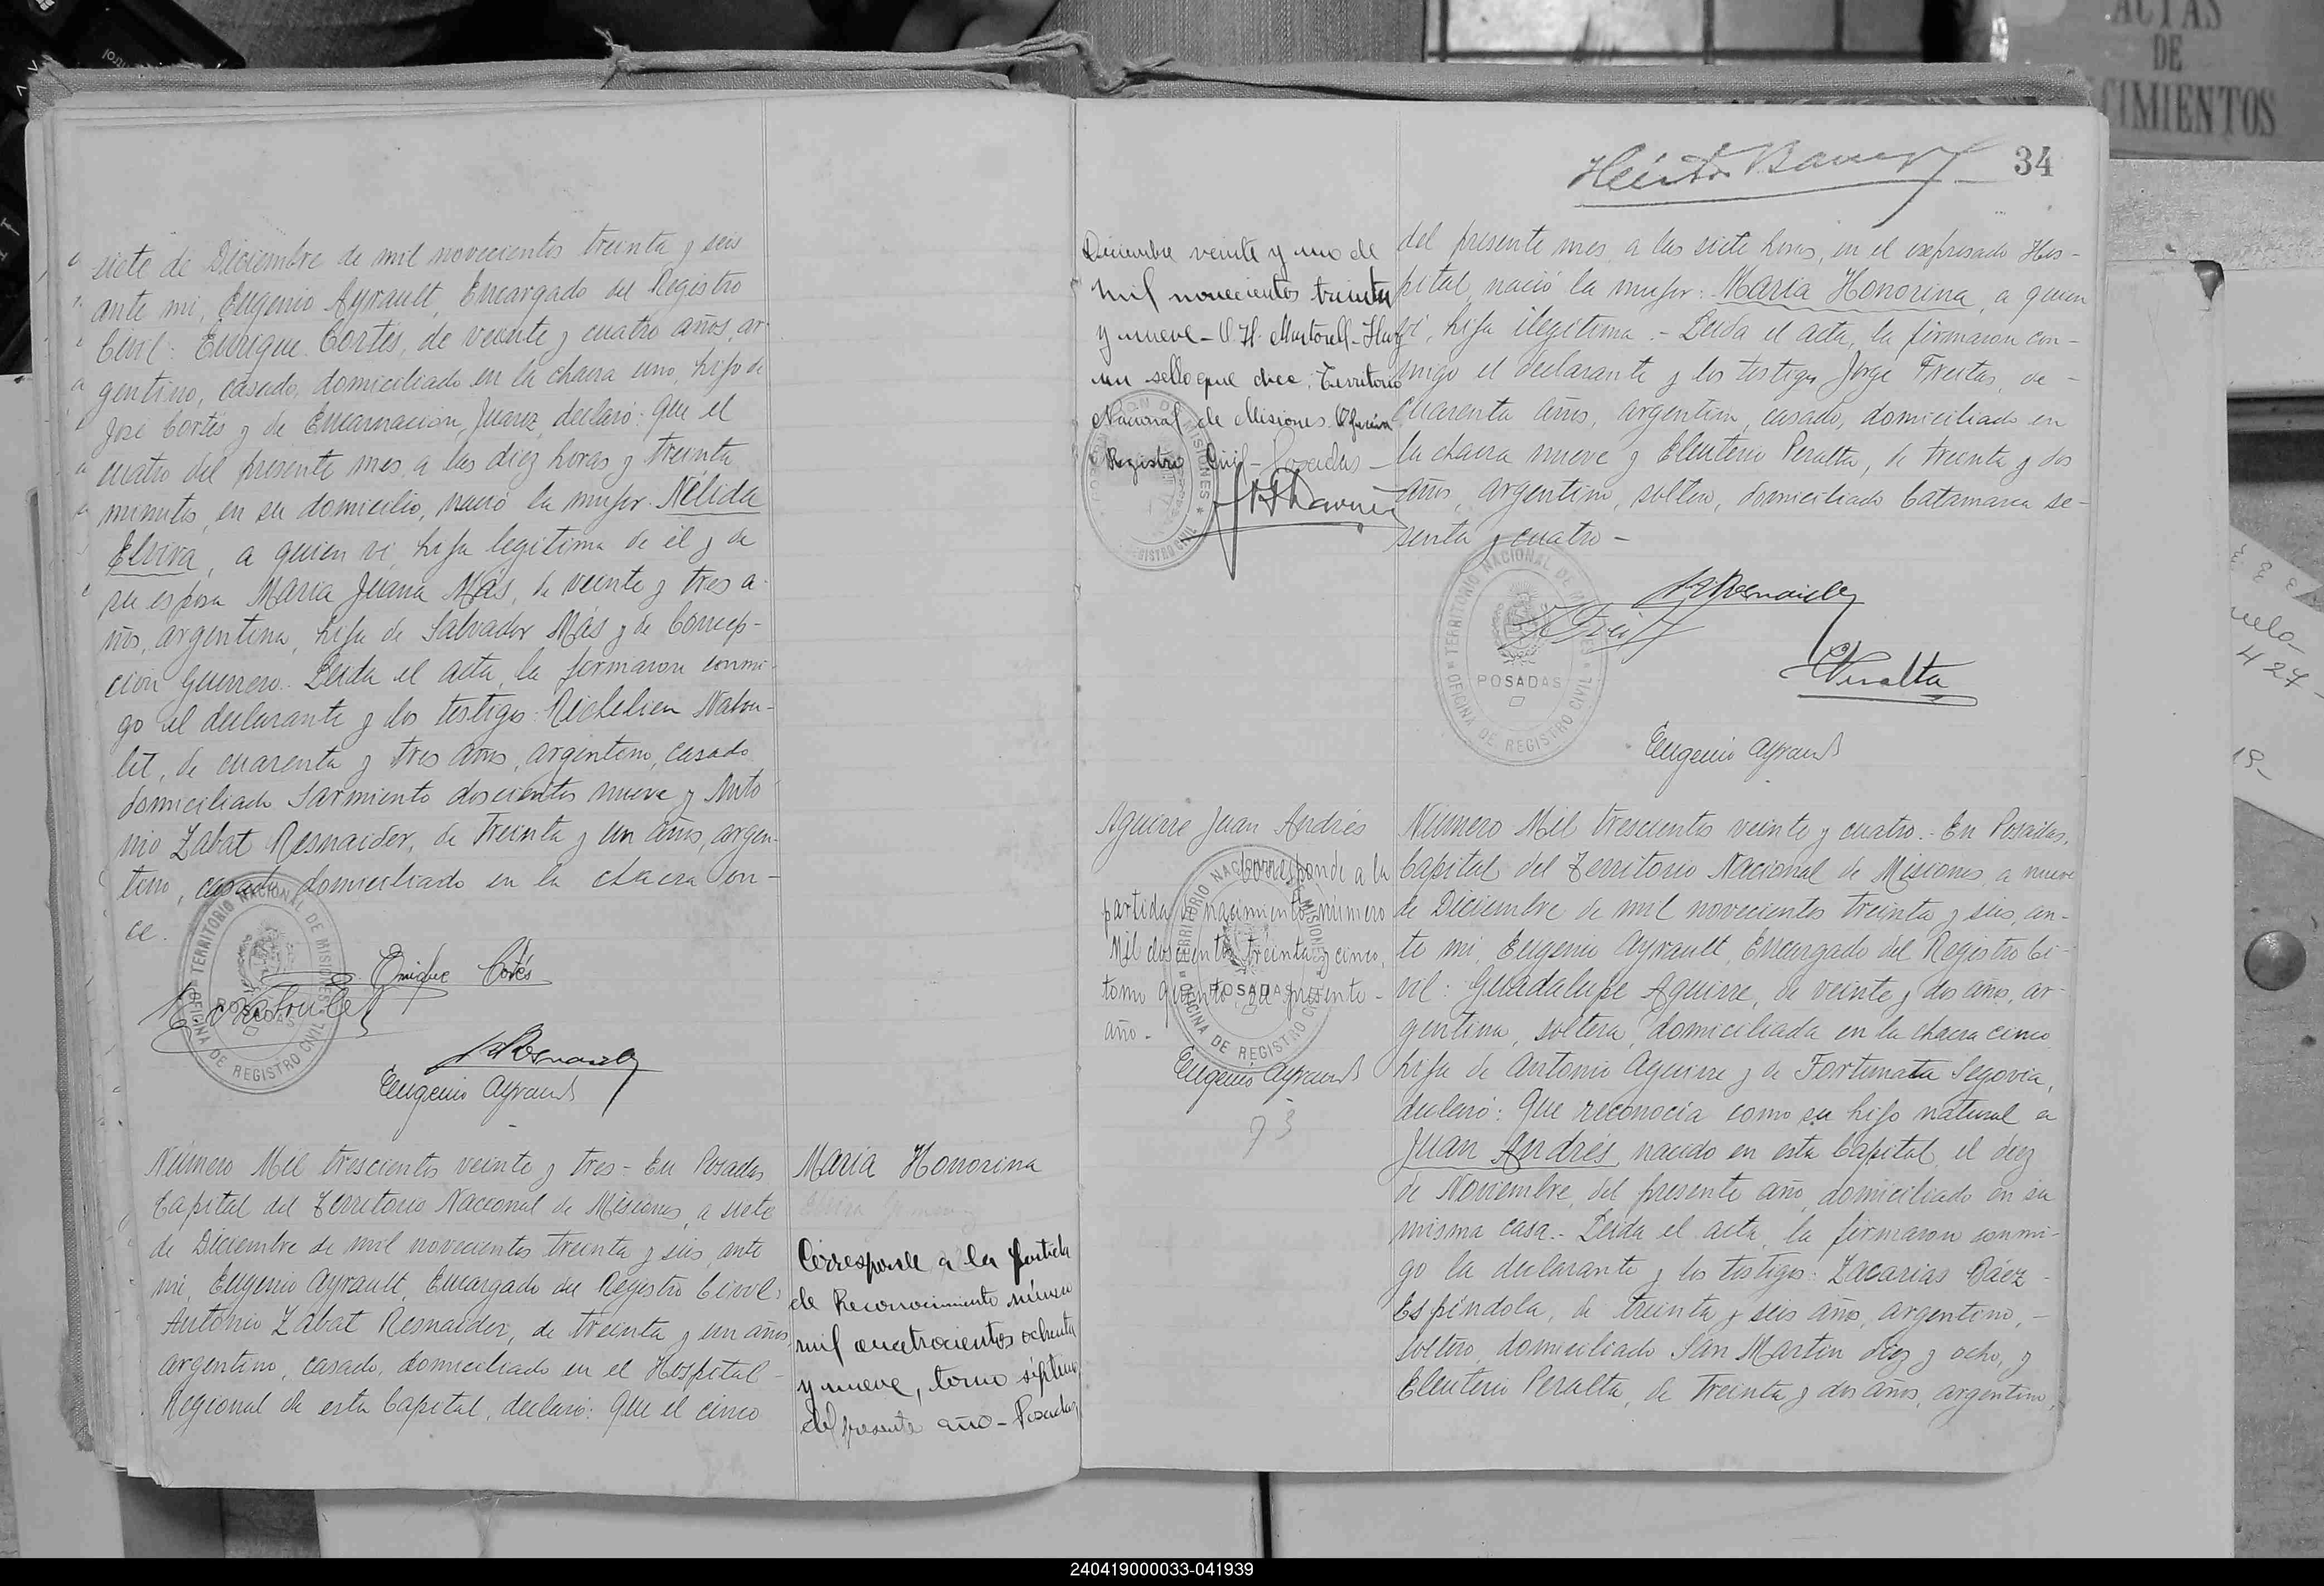 siete de Diciembre de mil novecientos treinta y seis
ante mi, Eugenio Ayrault, Encargado del Registro
Civil: Enrique Cortés, de veinte y cuatro años, ar-
gentino, casado, domiciliado en la chacra uno, hijo de
José Cortés y de Encarnación Juarez, declaró: Que el
cuatro del presente mes a las diez horas y treinta
minutos, en su domicilio, nació la mujer Nélida
Elvira, a quien vi, hija legitima de él y de
su esposa Maria Juana Más, de veinte y tres a-
ños, argentina, hija de Salvador Más y de Concep-
ción Guerrero. Leida el acta, la firmaron conmi-
go el declarante y los testigos: Richelieu
de cuarenta y tres años, argentino, casado,
domiciliado Sarmiento doscientos nueve y Anto-
nio Zabat Resnaider, de treinta y un años, argen-
tino, casado, domiciliado en la chacra on-
ce.
Enrique Cortés
TERRITORIO NACIONAL DE MISIONES
POSADAS
OFICINA DE REGISTRO CIVIL
Eugenio Ayrault
Número Mil trescientos veinte y tres - En Posadas
Capital del Territorio Nacional de Misiones, a siete
de Diciembre de mil novecientos treinta y seis, ante
mi, Eugenio Ayrault, Encargado del Registro Civil:
Antonio Zabat Resnaider, de treinta y un años,
argentino, casado, domiciliado en el Hospital
Regional de esta Capital, declaró: Que el cinco
Maria Honorina
Corresponde a la partida
de Reconocimiento número
mil cuatrocientos ochenta
y nueve, tomo séptimo
del presente año - Posadas
34
Diciembre veinte y uno de
mil novecientos treinta
y nueve - O. H. Martorell - Hay
un sello que dice: Territorio
Nacional de Misiones Oficina
Registro Civil - Posadas -
del presente mes, a las siete horas, en el expresado Hos-
pital, nació la mujer: Maria Honorina, a quien
vi, hija ilegitima. - Leida el acta, la firmaron con-
migo el declarante y los testigos Jorge Freitas, de
cuarenta años, argentino, casado, domiciliado en
la chacra nueve y Eleuterio Peralta, de treinta y dos
años, argentino, soltero, domiciliado Catamarca se-
senta y cuatro -
TERRITORIO NACIONAL DE MISIONES
POSADAS
OFICINA DE REGISTRO CIVIL
EPeralta
Eugenio Ayrault
Aguirre Juan Andrés
Corresponde a la
partida de nacimiento número
Mil doscientos treinta y cinco,
tomo quinto, del presente
año -
Eugenio Ayrault
TERRITORIO NACIONAL DE MISIONES
POSADAS
OFICINA DE REGISTRO CIVIL
73
Número Mil trescientos veinte y cuatro. - En Posadas,
Capital del Territorio Nacional de Misiones, a nueve
de Diciembre de mil novecientos treinta y seis, an-
te mi, Eugenio Ayrault, Encargado del Registro Ci-
vil: Guadalupe Aguirre, de veinte y dos años, ar-
gentina, soltera, domiciliada en la chacra cinco
hija de Antonio Aguirre y de Fortunata Segovia,
declaró: Que reconocia como su hijo natural a
Juan Andrés, nacido en esta Capital, el diez
de Noviembre del presente año, domiciliado en su
misma casa. - Leida el acta, la firmaron conmi-
go la declarante y los testigos: Zacarias Báez
Espindola, de treinta y seis años, argentino, -
soltero, domiciliado San Martin diez y ocho, y
Eleuterio Peralta, de treinta y dos años, argentino,
ACTAS
DE
CIMIENTOS
240419000033-041939